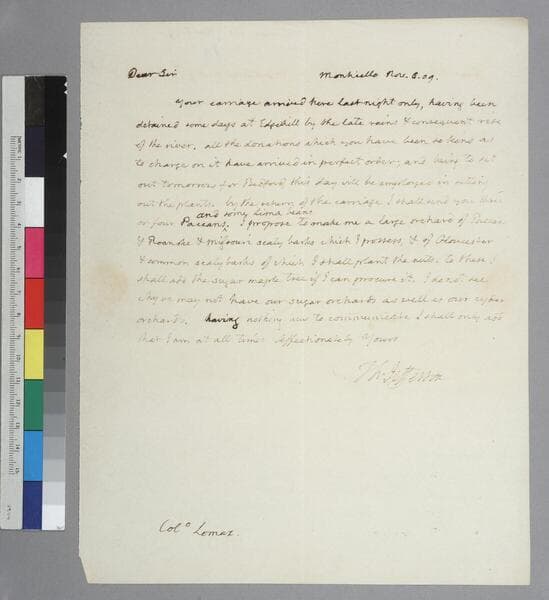 Dear Sir
Monticello Nov. 6. 09.
Your carriage arrived here last night only, having been
detained some days at Edgehill by the late rains & consequent rise
of the river. all the donations which you have been so kind as
to charge on it have arrived in perfect order, and being to set
out tomorrow for Bedford this day will be employed in setting
out the plants. by the return of the carriage I shall send you three
and some Lima beans
or four Paccans, I propose to make me a large orchard of Paccan
& Roanoke & Missouri scaly barks which I possess, & of Gloucester
& common scaly barks of which I shall plant the nuts. to these I
shall add the sugar maple tree if I can procure it. I do not see
why we may not have our sugar orchards as well as our cyder
orchards. having nothing new to communicate I shall only add
that I am at all times affectionately Yours
Th Jefferson
Colo Lomax.